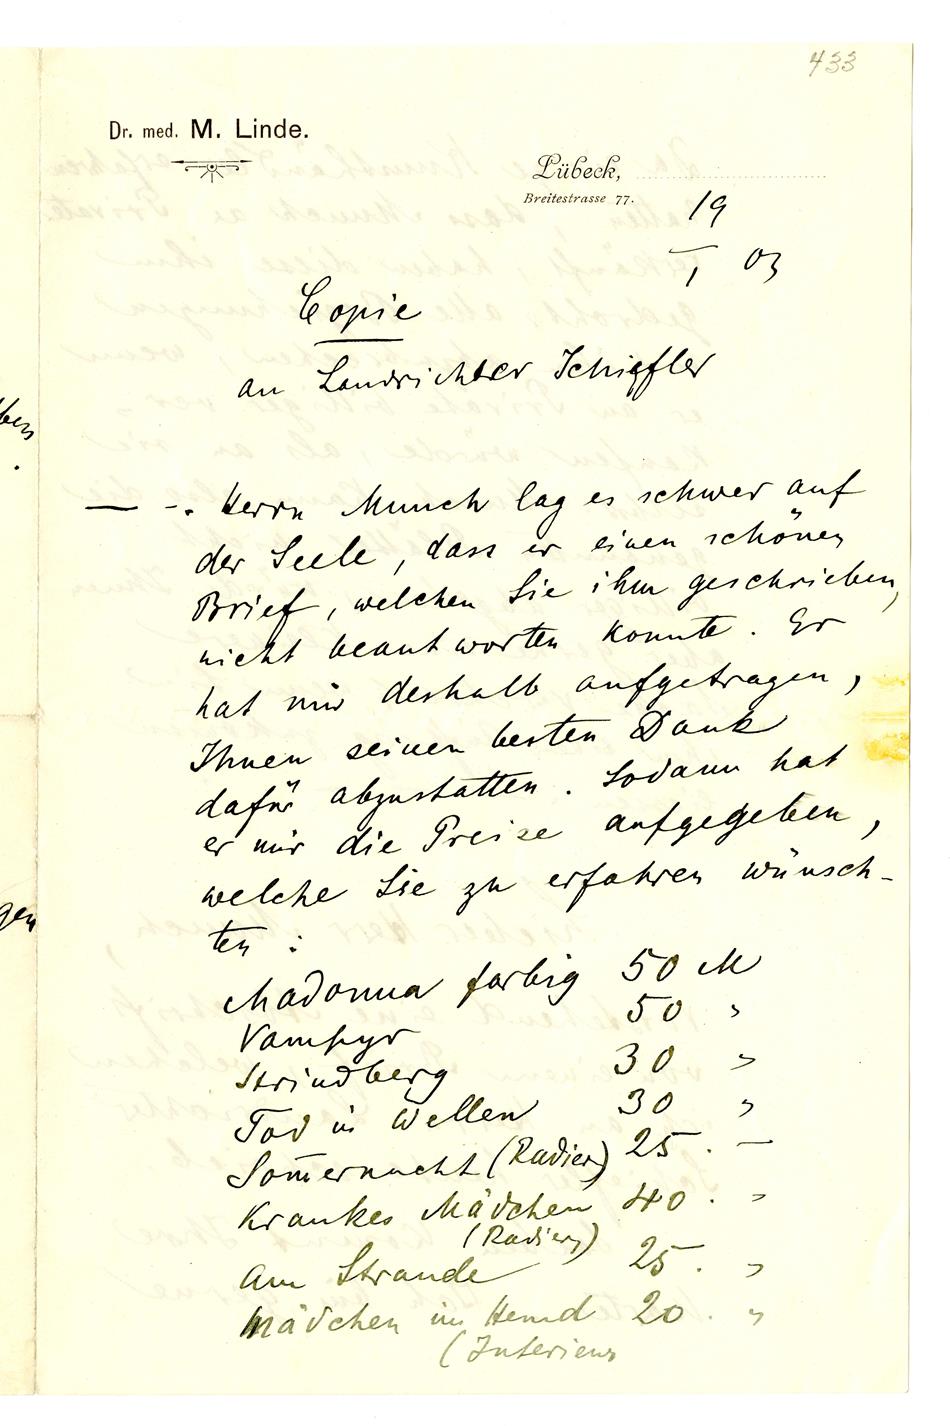 433
Dr. med. M. Linde.
Lübeck,
Breitestrasse 77.
19
I 03
Copie
an Landrichter Schiefler
— -. Herrn Munch lag es schwer auf
der Seele, dass er einen schönen
Brief, welchen Sie ihm geschrieben,
nicht beantworten konnte. Er
hat mir deshalb aufgetragen,
Ihnen seinen besten Dank
dafür abzustatten. Sodann hat
er mir die Preise aufgegeben,
welche Sie zu erfahren wünsch-
ten :
Madonna farbig 50 M
Vampyr 50 "
Strindberg 30 "
Tod in Wellen 30 "
Som̄ernacht (Radier) 25 . —
Krankes Mädchen 40 . "
(Radierg)
Am Strande 25 . "
Mädchen im Hemd 20 . "
(Interieur
ben
.
gen